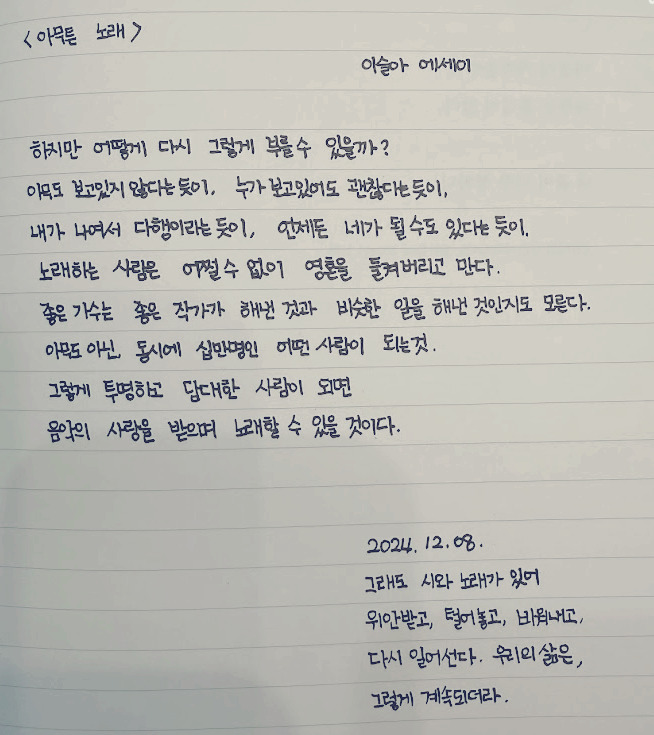 <아무튼 노래>
이슬아 에세이
하지만 어떻게 다시 그렇게 부를 수 있을까?
아무도 보고있지 않다는 듯이, 누가 보고있어도 괜찮다는 듯이,
내가 나여서 다행이라는 듯이, 언제든 네가 될 수도 있다는 듯이.
노래하는 사람은 어쩔 수 없이 영혼을 들켜버리고 만다.
좋은 가수는 좋은 작가가 해낸 것과 비슷한 일을 해낸 것인지도 모른다.
아무도 아닌, 동시에 십만명인 어떤 사람이 되는 것.
그렇게 투명하고 담대한 사람이 되면
음악의 사랑을 받으며 노래할 수 있을 것이다.
2024. 12. 08.
그래도 시와 노래가 있어
위안받고, 털어놓고, 비워내고,
다시 일어선다. 우리의 삶은,
그렇게 계속되더라.